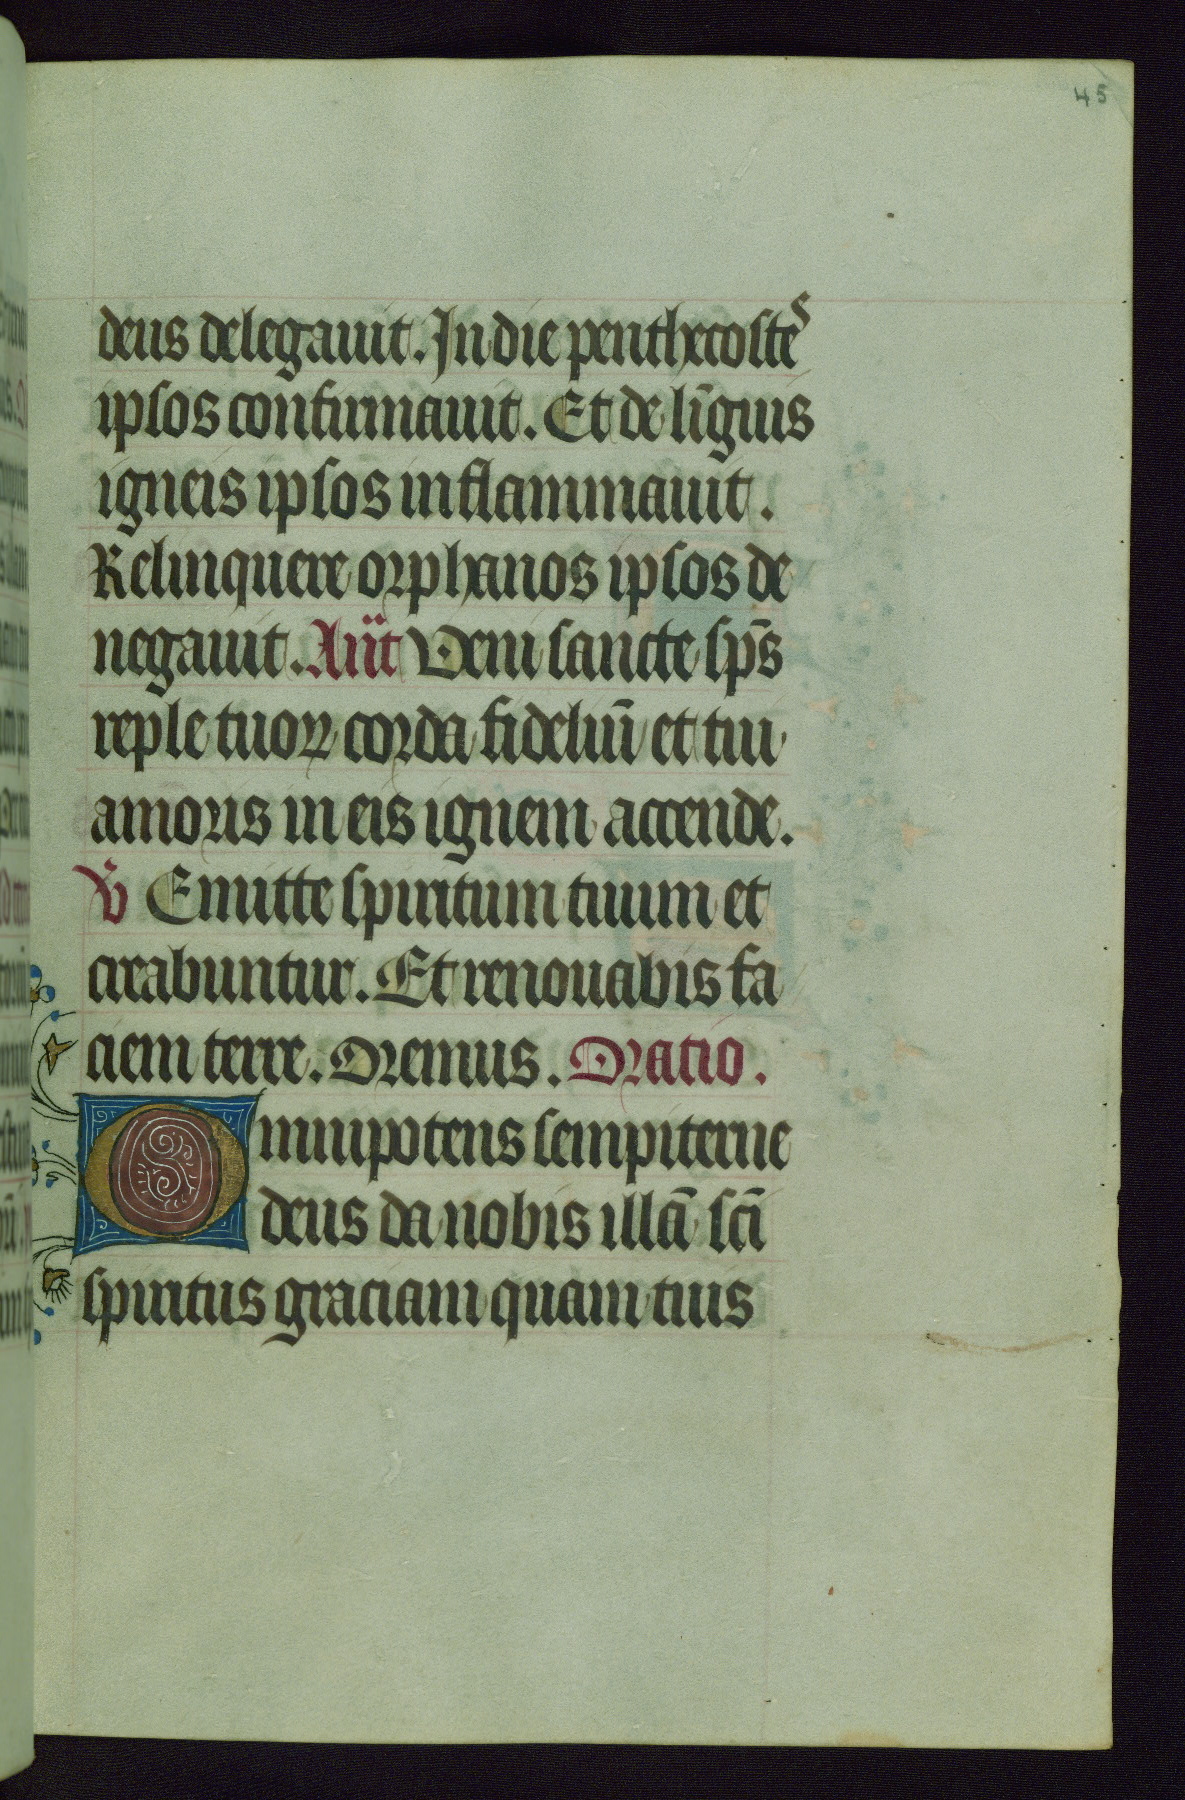 45
deus delegauit. In die penthecostes
ipsos confirmauit. Et de līguis
igneis ipsos inflammauit.
Relinquere orphanos ipsos de
negauit. Añt Veni sancte sp̄s
reple tuoꝝ corda fideliū et tui
amoris in eis ignem accende.
℣ Emitte spiritum tuum et
creabuntur. Et renouabis fa
ciem terre. Oremus. Oratio.
Omnipotens sempiterne
deus da nobis illā sc̄i
spiritus graciam quam tuis